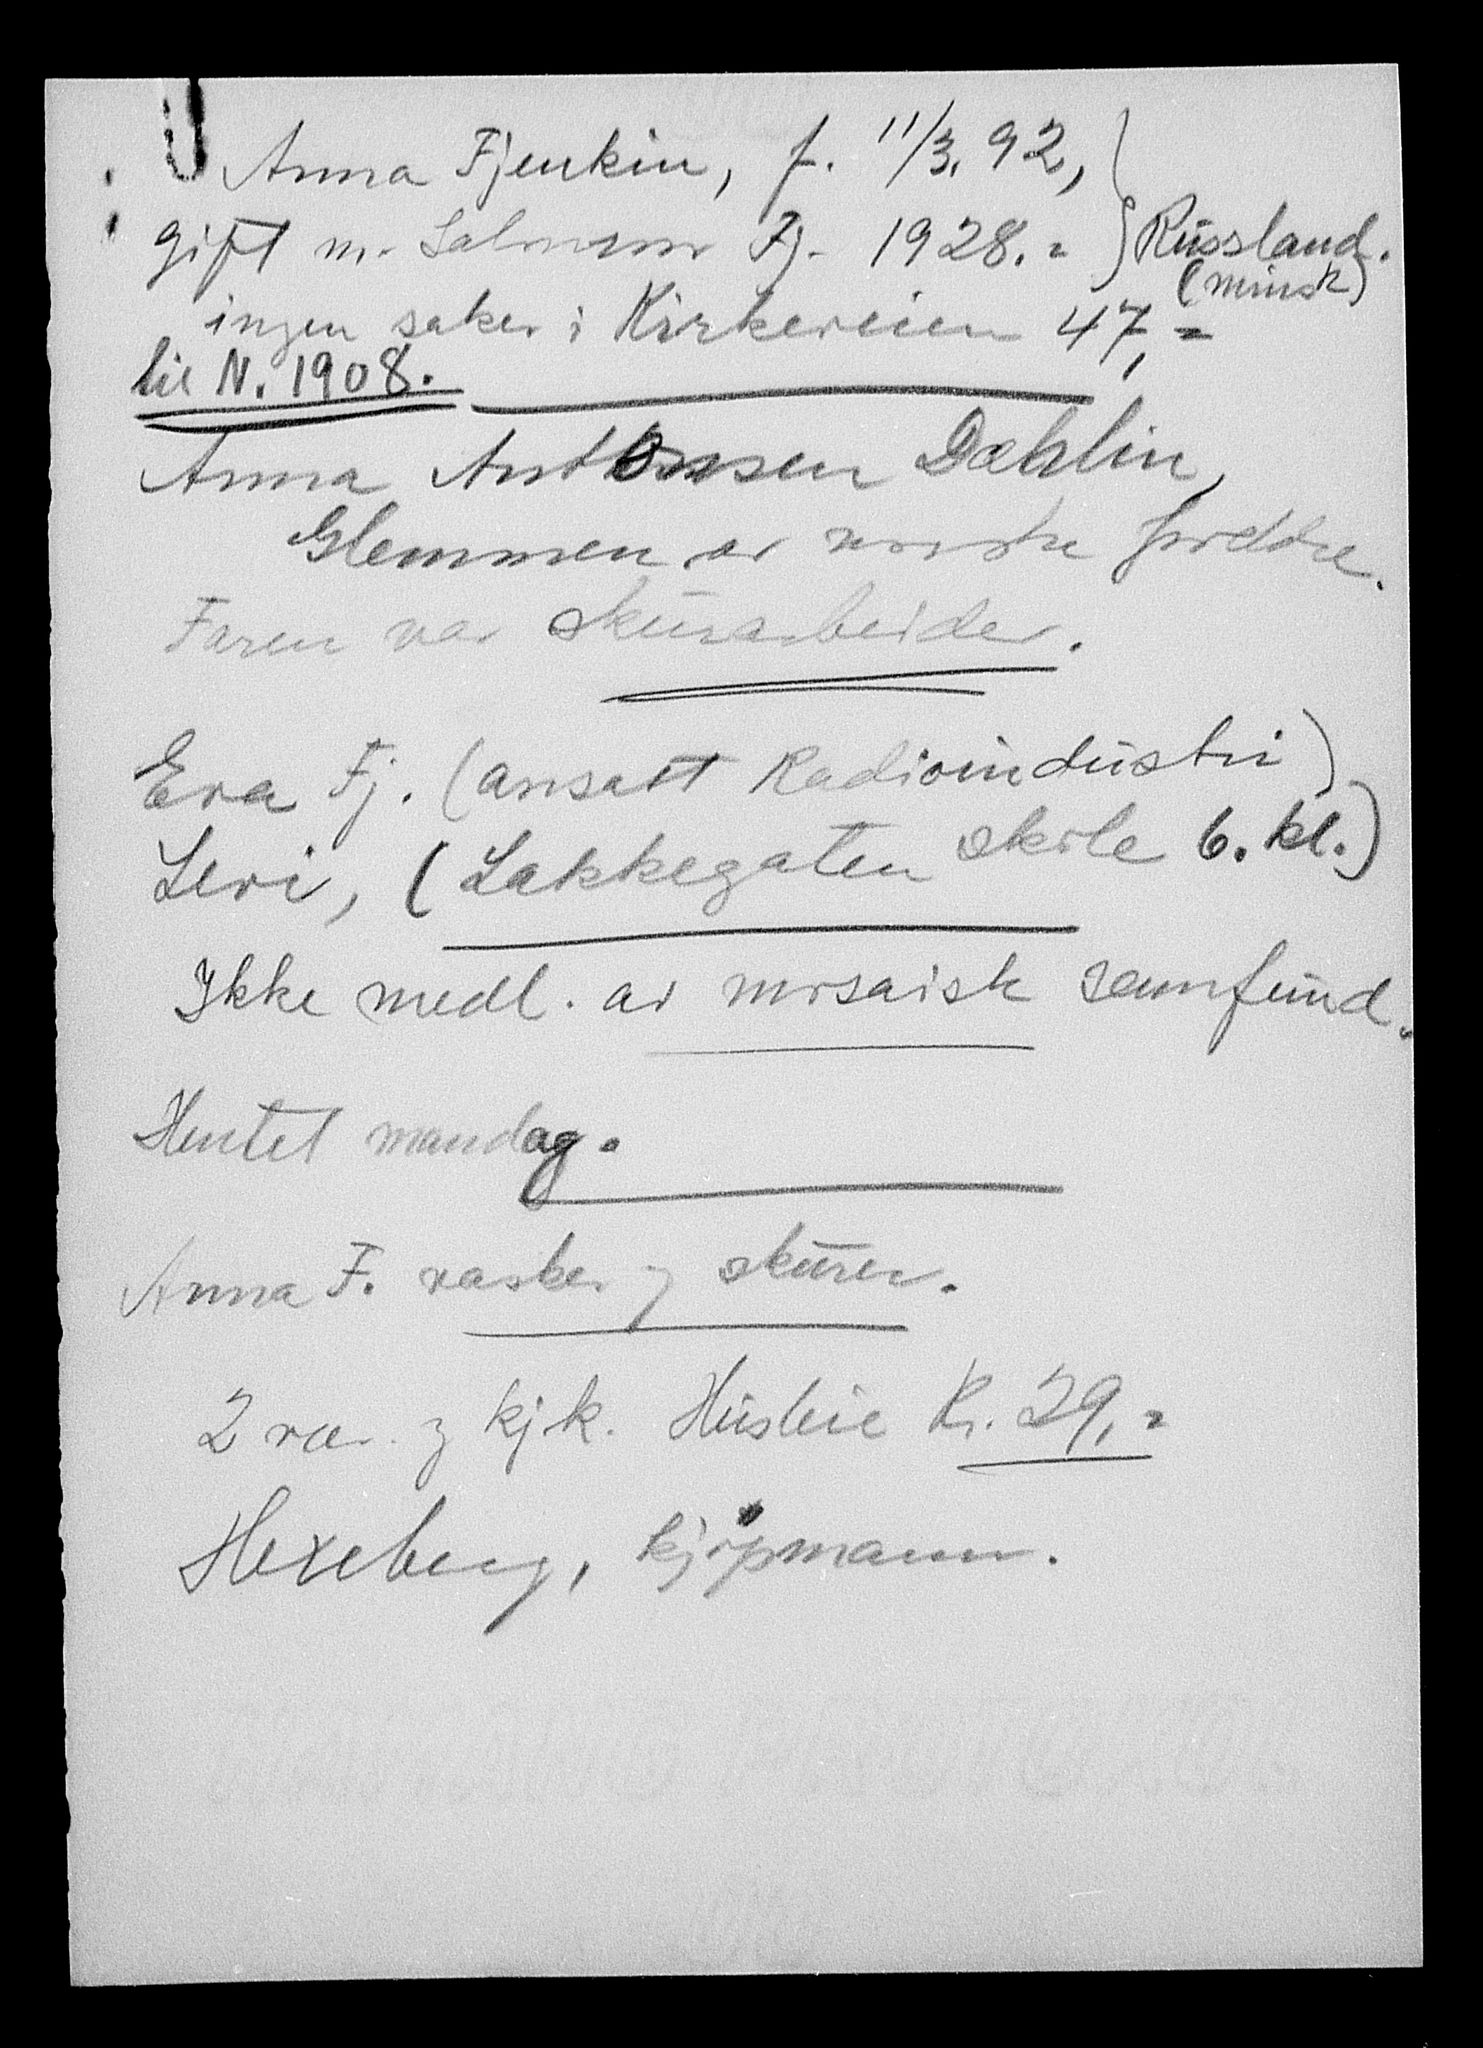 Anna Fjenkin, f. 11/3. 92,
gift m. Salomon Fj. 1928. = } Russland.
(Minsk)
ingen saker i Kirkeveien 47, =
til N. 1908.
Anna Antonsen Dahlin,
Glemmen av norske foreldre.
Faren var skurarbeider.
Eva Fj. (ansatt Radioindustri)
Levi, (Lakkegaten skole 6. kl.)
Ikke medl. av mosaisk samfund.
Hentet mandag.
Anna F. vasker og skurer.
2 vær. og kjk. Husleie Kr. 29, =
Hexeberg, kjøpmann.